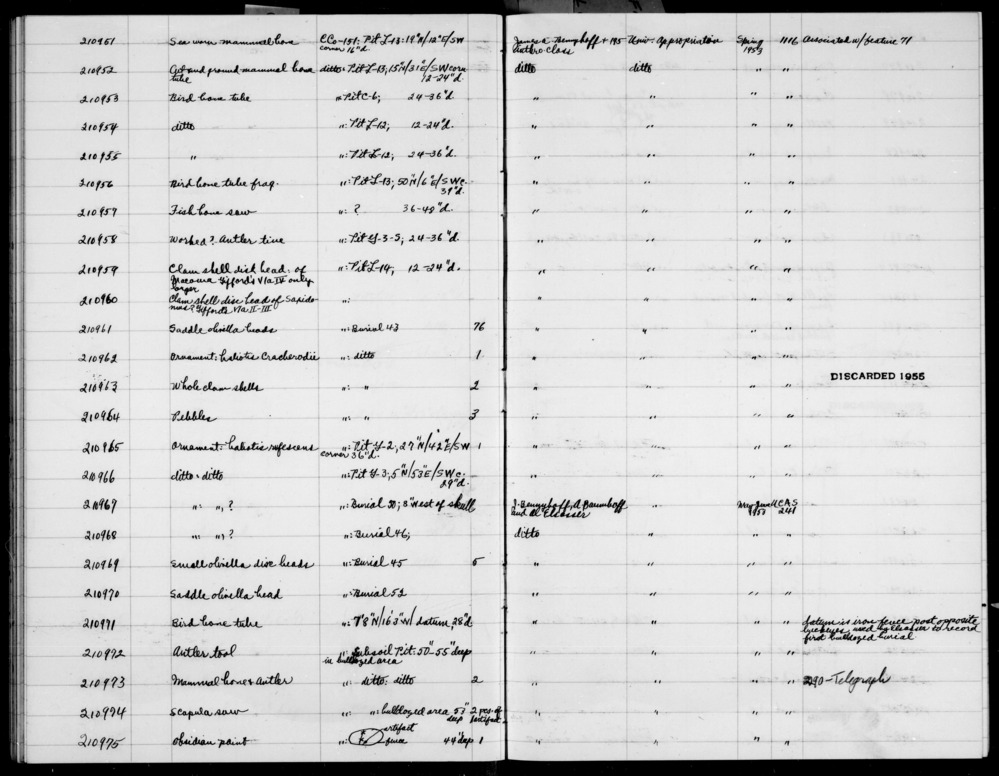 210951 Sea worn mammal bone CCo-151: Pit L-13: 19"N/12"E/SW James A. Bennyhoff + 195 Univ. Appropriation Spring 1116 Associated w/feature 71
corner 16"d. Anthro class 1953
210952 Cut and ground mammal bone ditto: Pit L-13, 15"N/31"E/SW corn ditto ditto " "
tube 12-24"d.
210953 Bird bone tube ": Pit C-6; 24-36"d. " " " "
210954 ditto ": Pit L-12; 12-24"d. " " " "
210955 " ": Pit L-12; 24-36"d. " " " "
210956 Bird bone tube frag. ": Pit L-13; 50"N/6"E/SWc. " " " "
39"d.
210957 Fish bone saw ": ? 36-48"d. " " " "
210958 Worked? Antler tine ": Pit Y-3-S; 24-36"d. " " " "
210959 Clam shell disk bead: of ": Pit L-14, 12-24"d. " " " "
Macoma Gifford's V1aIV only
larger
210960 Clam shell disc bead of Saxido ": " " " "
mus? Giffords V1a II-III
210961 Saddle olivella beads ": Burial 43 76 " " " "
210962 Ornament: haliotis Cracherodii ": ditto 1 " " " "
210963 Whole clam shells ": " 2 " " " " DISCARDED 1955
210964 Pebbles ": " 3 " " " "
210965 Ornament: haliotis rufescens ": Pit Y-2, 27"N/42"E/SW 1 " " " "
corner 36"d.
210966 ditto: ditto ": Pit Y-3, 5"N/53"E/SWc. " " " "
29"d.
210967 " " ? ": Burial 30; 8" West of skull J. Bennyhoff, A Baumhoff " CAS
and Al Elsasser 241
210968 " " ? ": Burial 46; ditto " " "
210969 Small olivella disc beads ": Burial 45 5 " " " "
210970 Saddle olivella bead ": Burial 52 " " " "
210971 Bird bone tube ": 7'8"N/16'3"W/ datum, 28"d. " " " " Datum is iron fence post opposite
buckeyes, used by Elsasser to record
first bulldozed burial
210972 Antler tool ": Subsoil Pit: 50"-55" deep " " " "
in bulldozed area
210973 Mammal bone & Antler ": ditto: ditto 2 " " " " -Telegraph
210974 Scapula saw " ": bulldozed area 53" 2 pcs. of " " " "
deep 1 artifact
210975 Obsidian point ": artifact 44"deep 1 " " " "